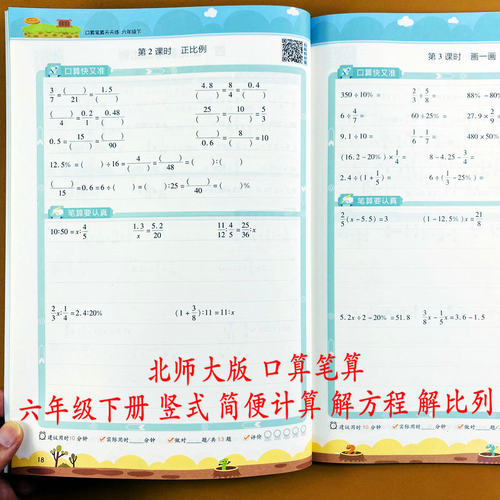 口算笔算天天练 六年级下
第 2 课时　正比例
口算快又准
3/7=( )/21=1.5/( )　( )/4=4/8=0.4/( )
( )/4=0.2/1=0.48/( )　25/( )=( )/10=5/3
0.5=15/( )=( )/90　0.6/( )=( )/8=10
12.5%=( )÷16=4/( )=( )/48=( ):( )
( )/15=0.6=6÷( )=( ):25=( )/40=( )%
笔算要认真
10:50=x:4/5　1.3/x=5.2/20　11/12:4/5=25/36:x
2/3x:1/4=2.4:20%　(1+3/8):11=11:x
建议用时10分钟　实际用时 分钟　做对 题/共 13 题　评价
18
第 3 课时　画一画
口算快又准
350÷10%=　2/3÷5/8=　88%-80%
6÷6/7=　60÷25%=　27.9×2/9
9.1÷10=　1/6-1/7=　480×50%
(16.2-20%)×1/4=　8-4.25-3/4=
2.4÷(1+1/5)=　6÷(1/3-25%)=
笔算要认真
2/5(x-5.5)=3　(1-12.5%)x=21/8
5.2x÷2-20%=51.8　3/8x-1/5x=3.6-1.5
建议用时10分钟　实际用时 分钟　做对
北师大版 口算笔算
六年级下册 竖式 简便计算 解方程 解比列